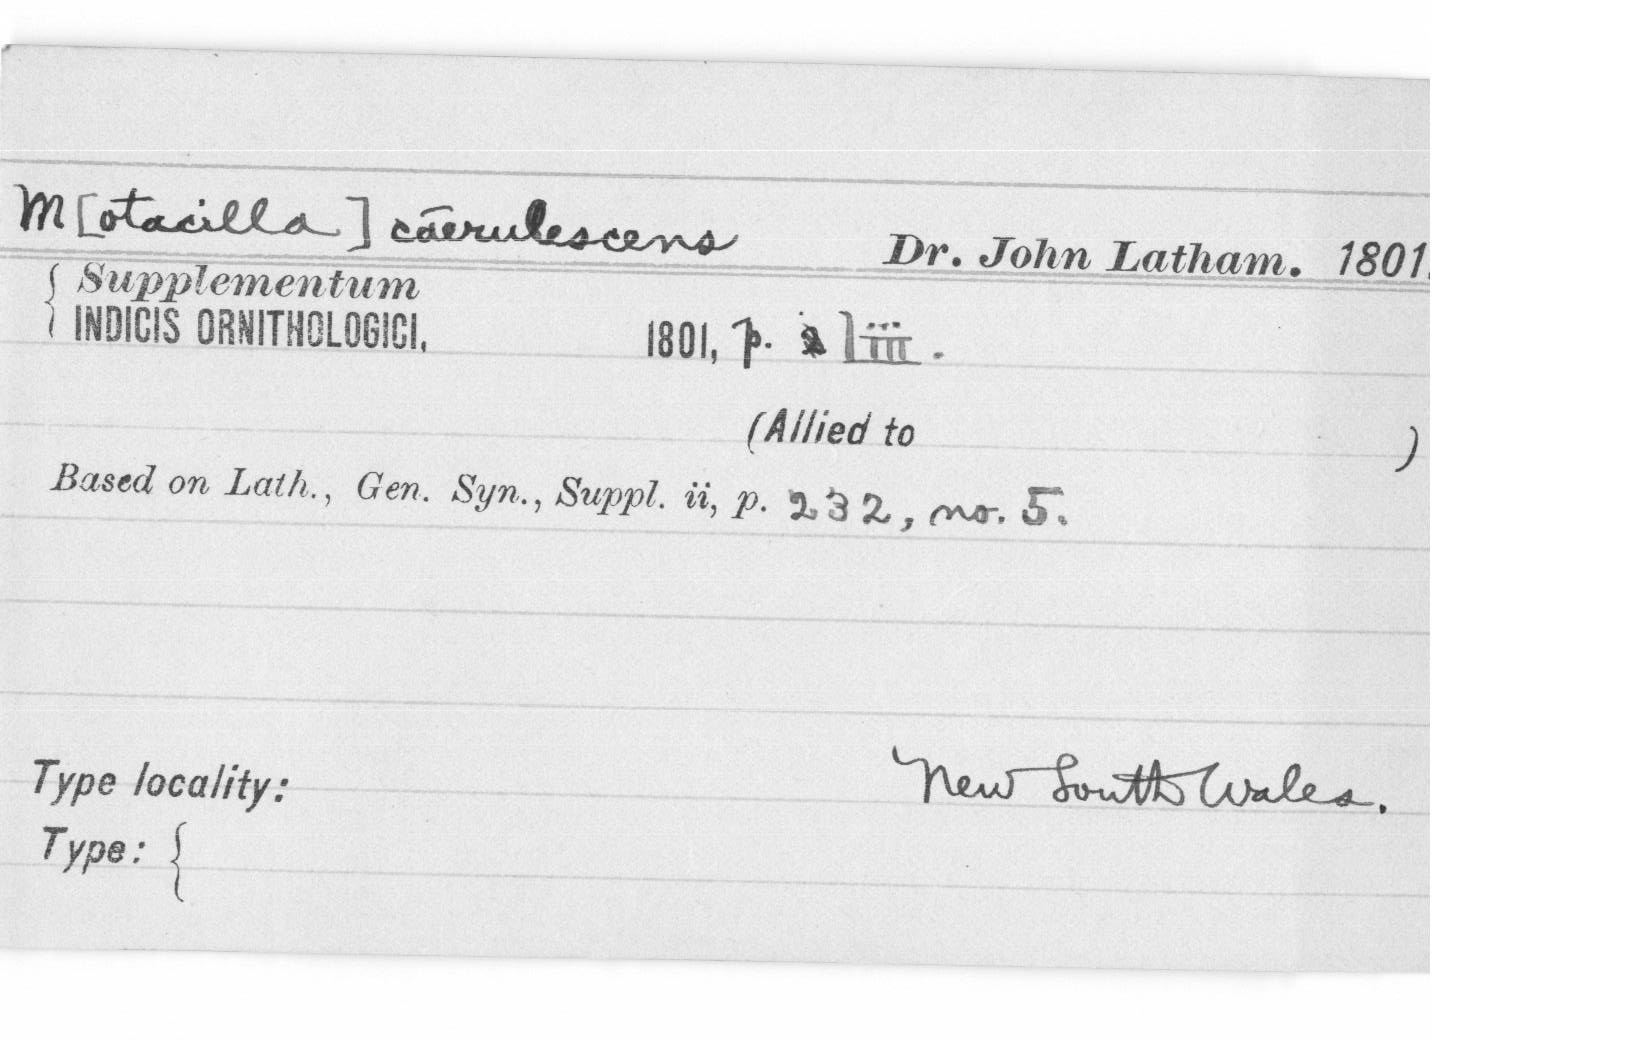 M[otacilla] caerulescens Dr. John Latham. 1801.
{ Supplementum
INDICIS ORNITHOLOGICI, 1801, p. liii.
(Allied to )
Based on Lath., Gen. Syn., Suppl. ii, p. 232, no. 5.
Type locality: New South Wales.
Type: {